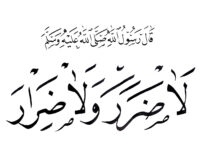 قَالَ رَسُولُ اللَّهِ صَلَّى اللَّهُ عَلَيْهِ وَسَلَّمَ
لَا ضَرَرَ وَلَا ضِرَارَ